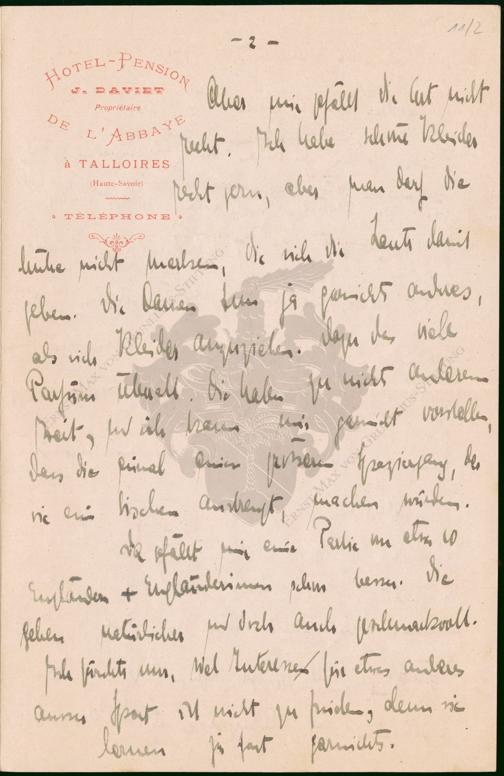 11/2
- 2 -
HOTEL-PENSION
J. DAVIET
Propriétaire
DE L'ABBAYE
à TALLOIRES
(Haute-Savoie)
TÉLÉPHONE
Aber mir gefällt die Art nicht
recht. Ich habe schöne Kleider
recht gern, aber man darf die
Mühe nicht merken, die sich die Leute damit
geben. Die Damen tun ja garnicht anderes,
als sich Kleider anzuziehen. Dazu das viele
Parfüm überall. Die haben zu nicht anderem
Zeit, und ich kann mir garnicht vorstellen,
dass die einmal einen grösseren Spaziergang, der
sie ein bischen anstrengt, machen würden.
Da gefällt mir eine Partie von etwa 10
Engländern + Engländerinnen schon besser. Die
gehen natürlicher und doch auch geschmackvoll.
Ich fürchte nur, viel Interesse für etwas anderes
ausser Sport ist nicht zu finden, denn sie
lernen ja fast garnichts.
ERNST MAX VON GRUNELIUS-STIFTUNG